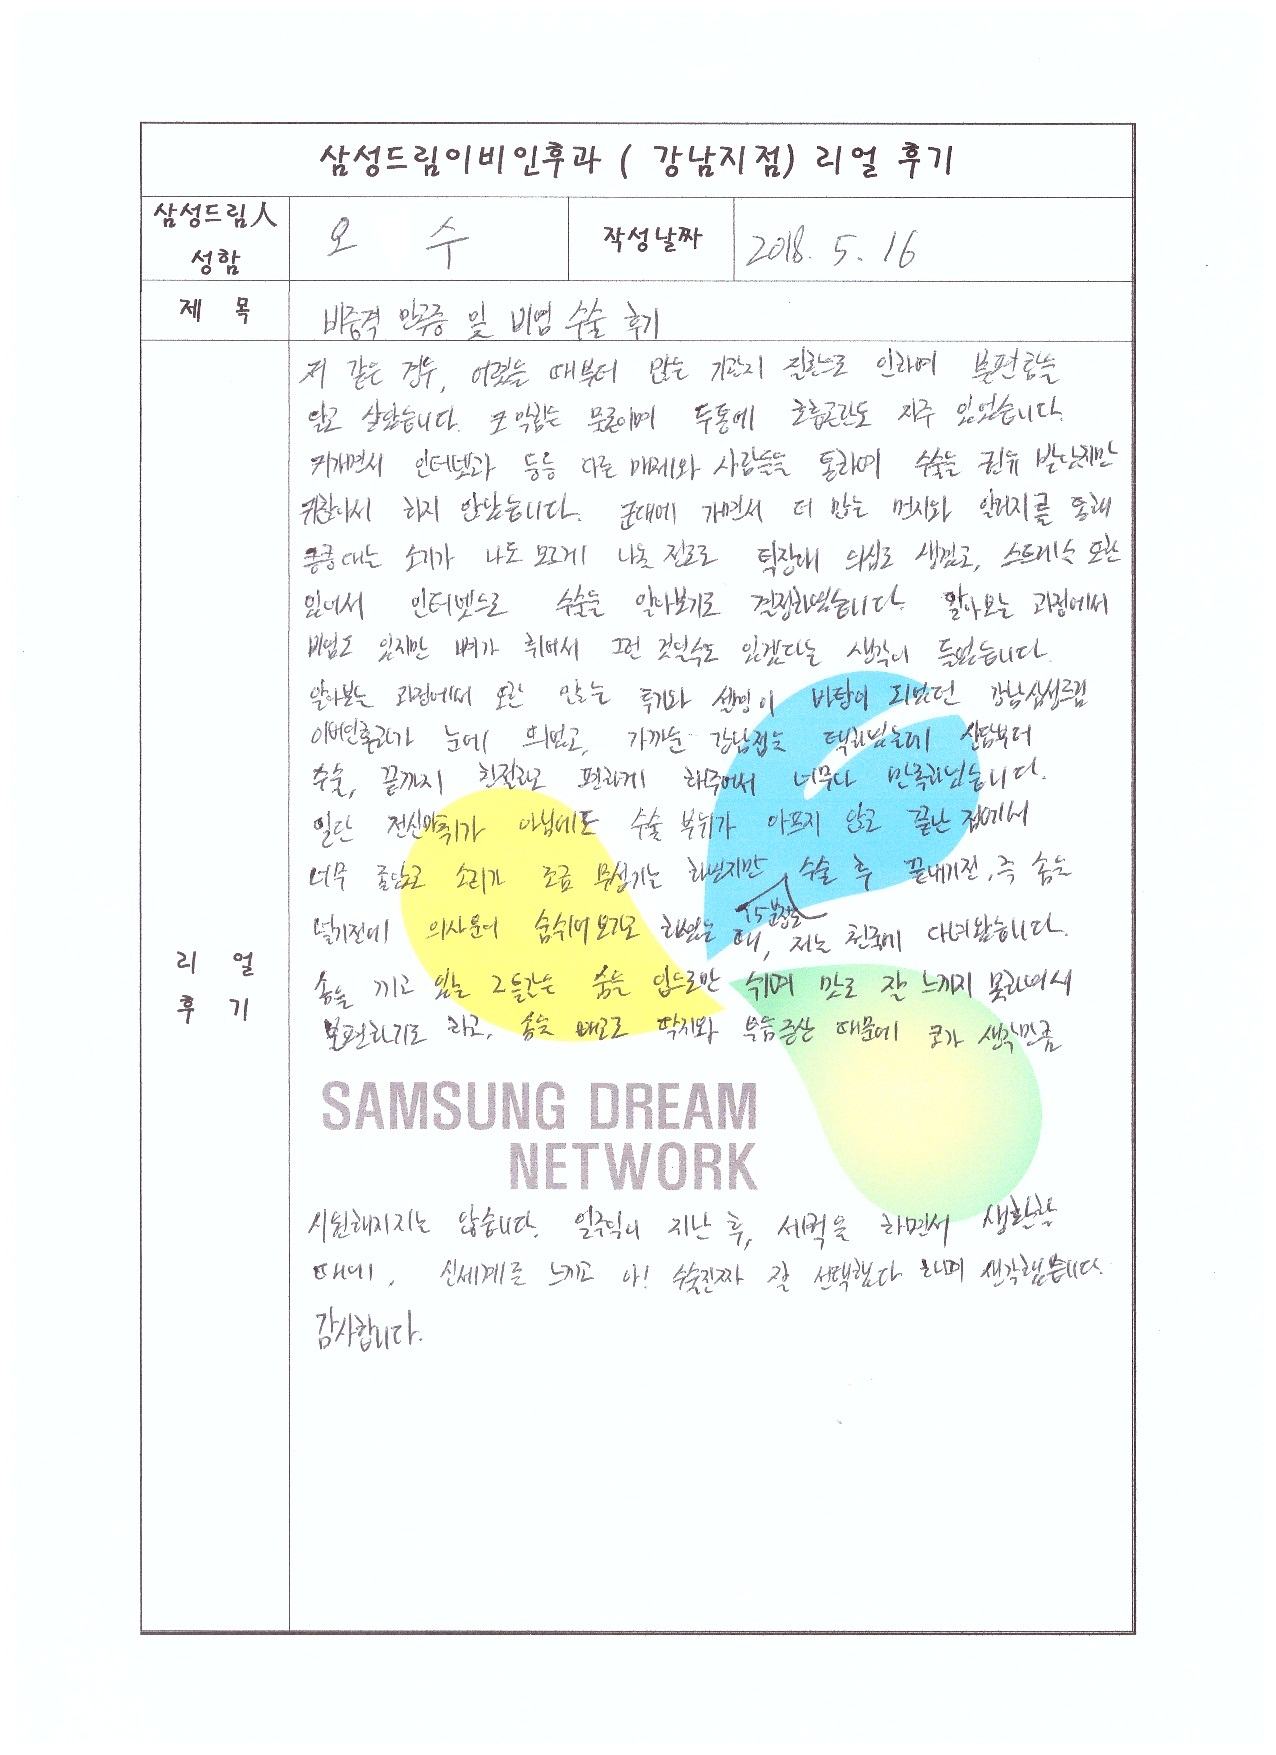 삼성드림이비인후과 ( 강남지점) 리얼 후기
삼성드림人
성함
오 수
작성날짜
2018. 5. 16
제 목
비중격 만곡증 및 비염 수술 후기
리 얼
후 기
저 같은 경우, 어렸을 때부터 많은 기관지 질환으로 인하여 불편함을
앓고 살았습니다. 코막힘은 물론이며 두통에 호흡곤란도 자주 있었습니다.
커가면서 인터넷과 등등 다른 매체와 사람들을 통하여 수술을 권유 받았지만
귀찮아서 하지 않았습니다. 군대에 가면서 더 많은 먼지와 알러지를 통해
킁킁대는 소리가 나도 모르게 나올 정도로 틱장애 의심도 생겼고, 스트레스 또한
있어서 인터넷으로 수술을 알아보기로 결정하였습니다. 알아보는 과정에서
비염도 있지만 뼈가 휘어서 그런 것일수도 있겠다는 생각이 들었습니다.
알아보는 과정에서 또한 많은 후기와 설명이 바탕이 되었던 강남삼성드림
이비인후과가 눈에 띄었고, 가까운 강남점을 택하였는데 상담부터
수술, 끝까지 친절하고 편하게 해주어서 너무나 만족하였습니다.
일단 전신마취가 아님에도 수술 부위가 아프지 않고 끝난 점에서
너무 놀랍고 소리가 조금 무섭기는 하였지만 수술 후 끝내기전, 즉 솜을
넣기전에 의사분이 숨쉬어보라고 하였을 때, 저는 천국에 다녀왔습니다.
15분정도
솜을 끼고 있는 그 들간은 숨을 입으로만 쉬며 맛도 잘 느끼지 못하여서
불편하기도 하고, 솜을 빼고도 딱지와 부음증상 때문에 코가 생각만큼
SAMSUNG DREAM
NETWORK
시원해지지는 않습니다. 일주일이 지난 후, 세척을 하면서 생활할
때에, 신세계를 느끼고 아! 수술진짜 잘 선택했다 하며 생각했습니다.
감사합니다.